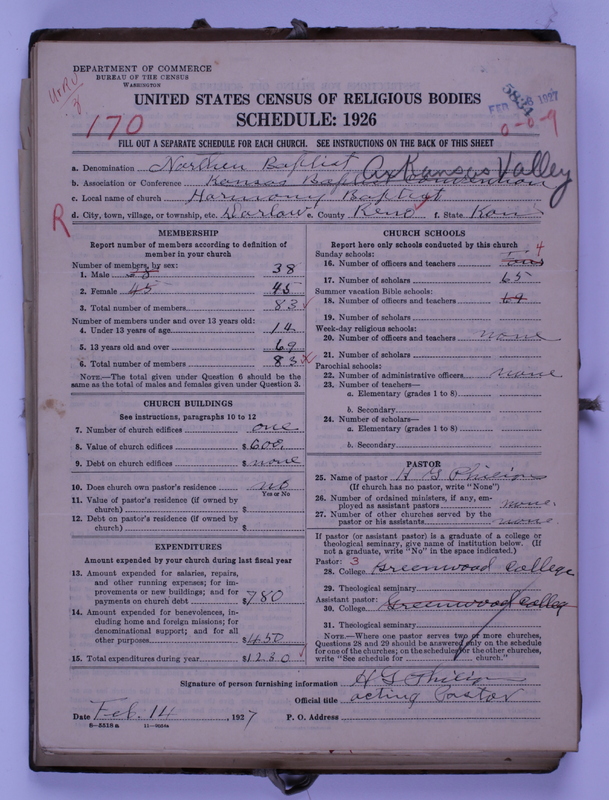 DEPARTMENT OF COMMERCE
BUREAU OF THE CENSUS
WASHINGTON
FEB 8 1927
UNITED STATES CENSUS OF RELIGIOUS BODIES
SCHEDULE: 1926
170
0-0-9
FILL OUT A SEPARATE SCHEDULE FOR EACH CHURCH. SEE INSTRUCTIONS ON THE BACK OF THIS SHEET
a. Denomination Northern Baptist
Arkansas Valley
b. Association or Conference Kansas Baptist Convention
c. Local name of church Harmony Baptist
R
d. City, town, village, or township, etc. Darlow e. County Reno f. State Kans
MEMBERSHIP
Report number of members according to definition of
member in your church
Number of members, by sex:
1. Male 38 38
2. Female 45 45
3. Total number of members 83
Number of members under and over 13 years old:
4. Under 13 years of age 14
5. 13 years old and over 69
6. Total number of members 83
NOTE.—The total given under Question 6 should be the
same as the total of males and females given under Question 3.
CHURCH BUILDINGS
See instructions, paragraphs 10 to 12
7. Number of church edifices one
8. Value of church edifices $600.
9. Debt on church edifices $none
10. Does church own pastor's residence no
Yes or No
11. Value of pastor's residence (if owned by
church) $
12. Debt on pastor's residence (if owned by
church) $
EXPENDITURES
Amount expended by church during last fiscal year
13. Amount expended for salaries, repairs,
and other running expenses; for im-
provements or new buildings; and for
payments on church debt $780
14. Amount expended for benevolences, in-
cluding home and foreign missions; for
denominational support; and for all
other purposes $450
15. Total expenditures during year $1230
CHURCH SCHOOLS
Report here only schools conducted by this church
Sunday schools: 4
16. Number of officers and teachers
17. Number of scholars 65
Summer vacation Bible schools:
18. Number of officers and teachers 69
19. Number of scholars
Week-day religious schools:
20. Number of officers and teachers none
21. Number of scholars
Parochial schools:
22. Number of administrative officers none
23. Number of teachers—
a. Elementary (grades 1 to 8)
b. Secondary
24. Number of scholars—
a. Elementary (grades 1 to 8)
b. Secondary
PASTOR
25. Name of pastor H G
(If church has no pastor, write "None")
26. Number of ordained ministers, if any, em-
ployed as assistant pastors none.
27. Number of other churches served by the
pastor or his assistants none
If pastor (or assistant pastor) is a graduate of a college or
theological seminary, give name of institution below. (If
not a graduate, write "No" in the space indicated.)
Pastor: 3
28. College Greenwood College
29. Theological seminary
Assistant pastor:
30. College Greenwood College
31. Theological seminary
NOTE.—Where one pastor serves two or more churches,
Questions 28 and 29 should be answered only on the schedule
for one of the churches; on the schedules for the other churches,
write "See schedule for church."
Signature of person furnishing information H G
Official title acting Pastor
Date Feb. 14, 1927 P. O. Address
8-5518a 11-9054a